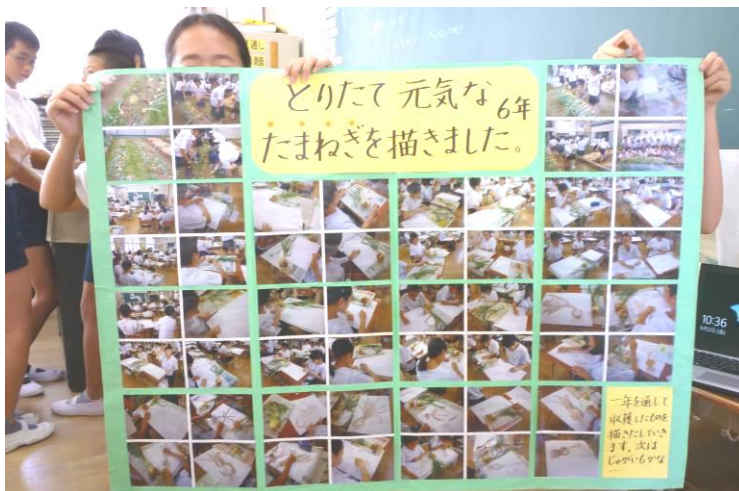 とりたて 元気な 6年
たまねぎを描きました。
一年を通して
収穫したものを
描きたしていき
ます。次は
じゃがいもかな
10:36